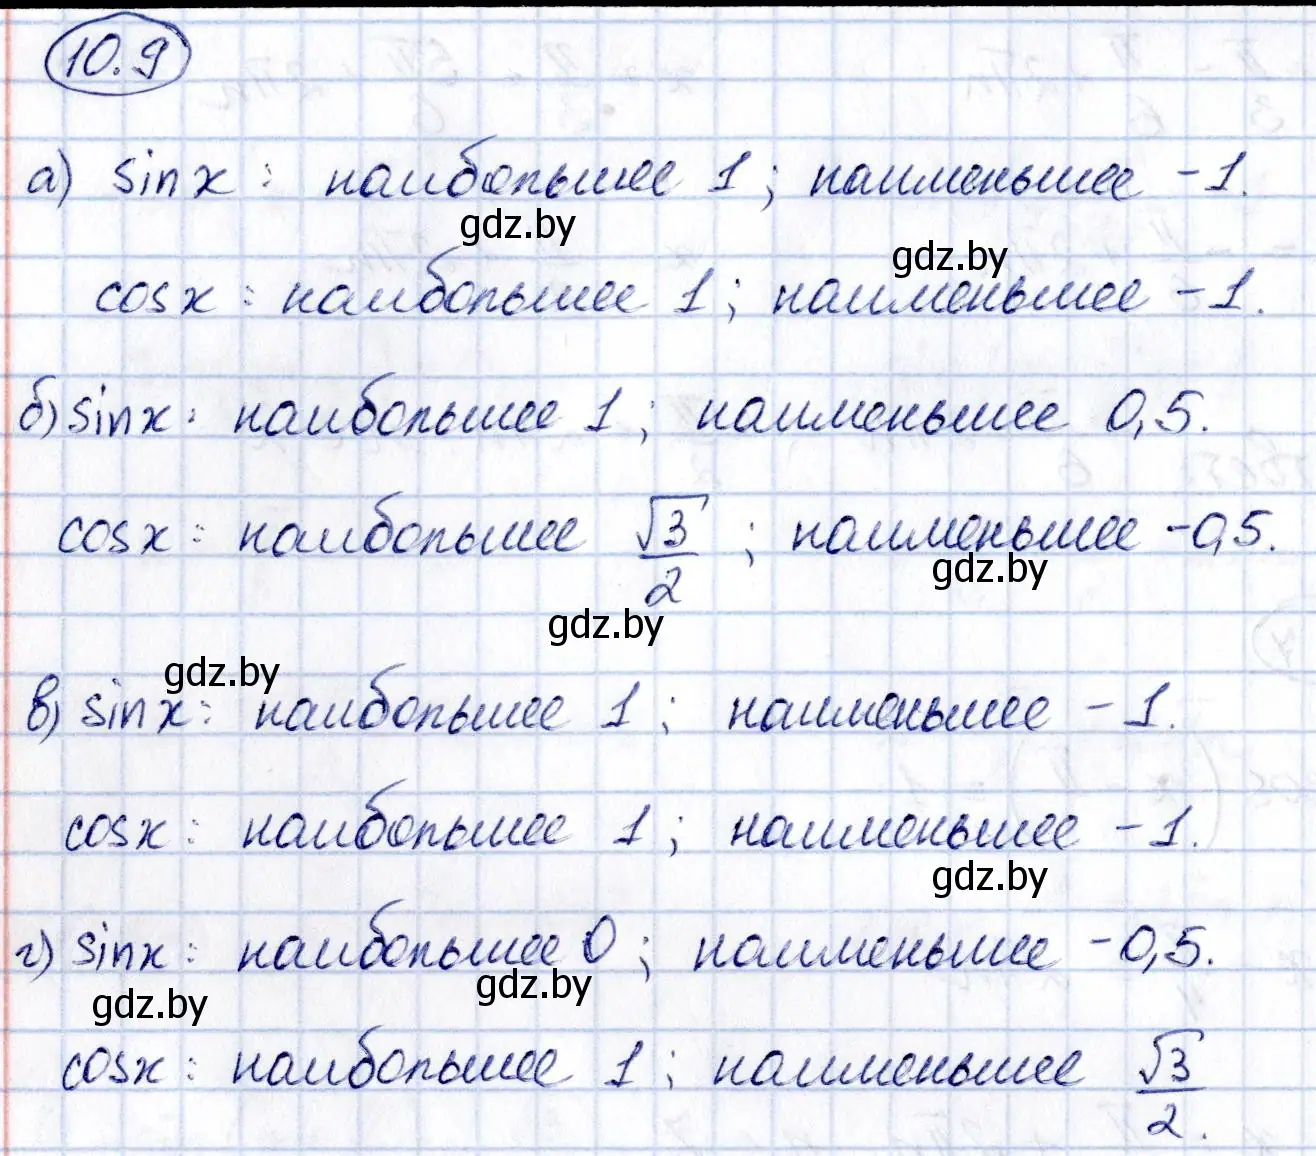 10.9
а) sin x : наибольшее 1 ; наименьшее -1.
gdz.by
gdz.by
cos x : наибольшее 1 ; наименьшее -1.
б) sin x : наибольшее 1 ; наименьшее 0,5.
cos x : наибольшее √3/2 ; наименьшее -0,5.
gdz.by
gdz.by
gdz.by
в) sin x : наибольшее 1 ; наименьшее -1.
cos x : наибольшее 1 ; наименьшее -1.
gdz.by
г) sin x : наибольшее 0 ; наименьшее -0,5.
gdz.by
gdz.by
cos x : наибольшее 1 ; наименьшее √3/2.